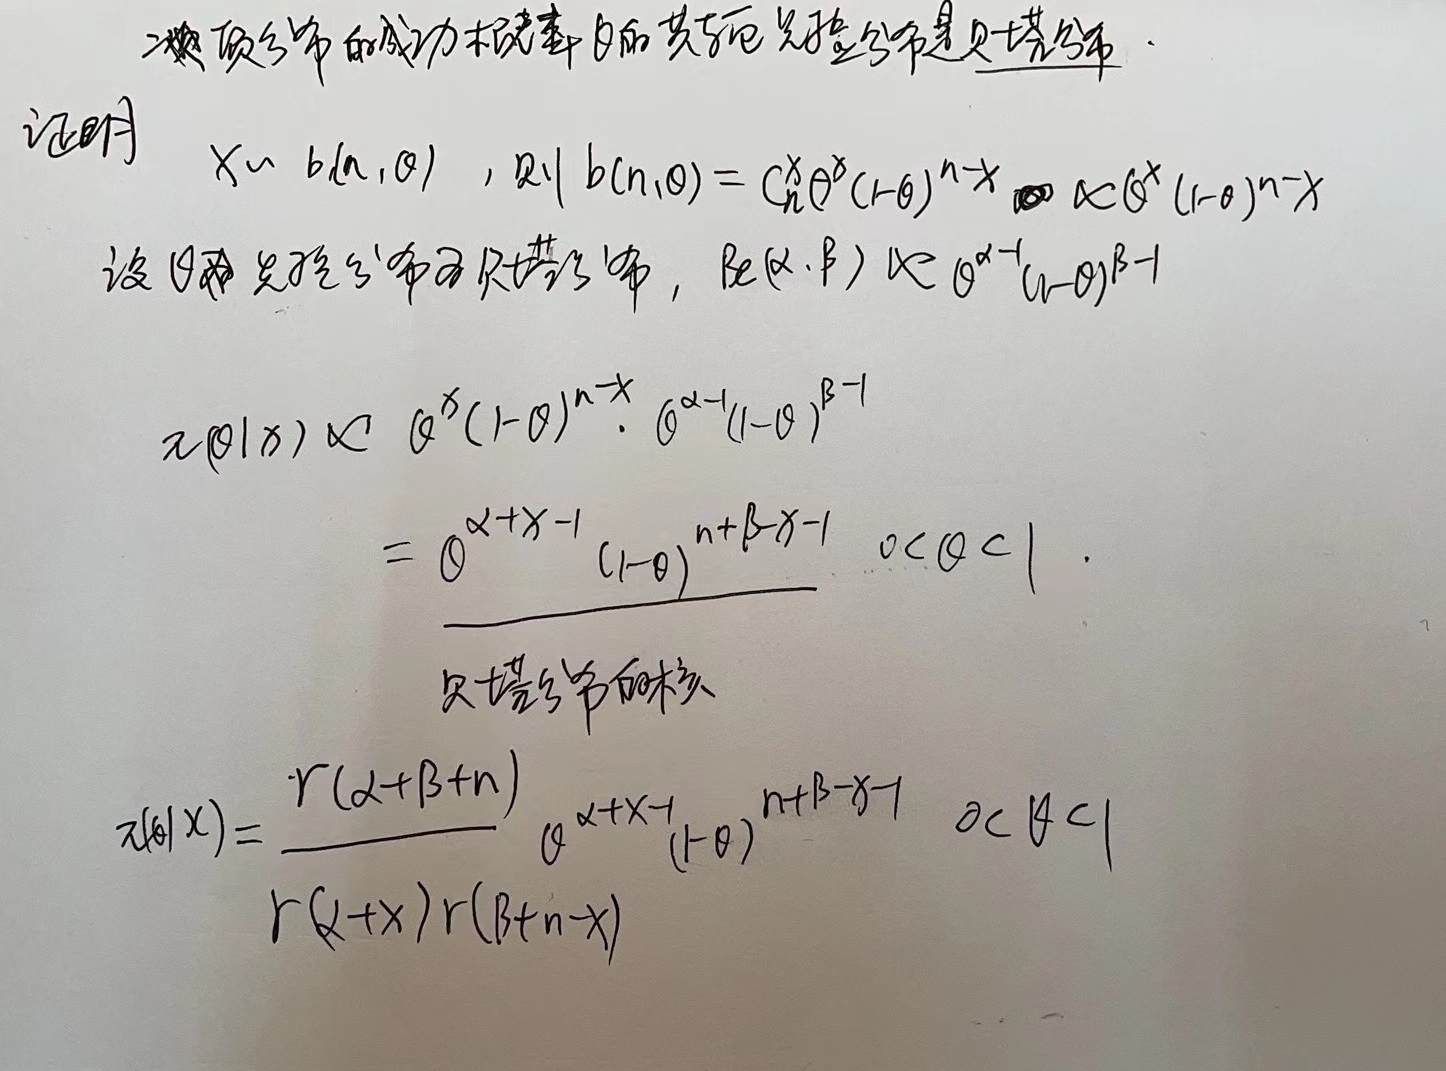 二项分布的成功概率θ的共轭先验分布是贝塔分布.
证明
X~b(n,θ),则b(n,θ)=C_n^x θ^x(1-θ)^{n-x} ∝θ^x(1-θ)^{n-x}
设θ的先验分布为贝塔分布,Be(α.β)∝θ^{α-1}(1-θ)^{β-1}
π(θ|x)∝θ^x(1-θ)^{n-x}·θ^{α-1}(1-θ)^{β-1}
=θ^{α+x-1}(1-θ)^{n+β-x-1} 0<θ<1.
贝塔分布的核
π(θ|x)=Γ(α+β+n)/Γ(α+x)Γ(β+n-x) θ^{α+x-1}(1-θ)^{n+β-x-1} 0<θ<1